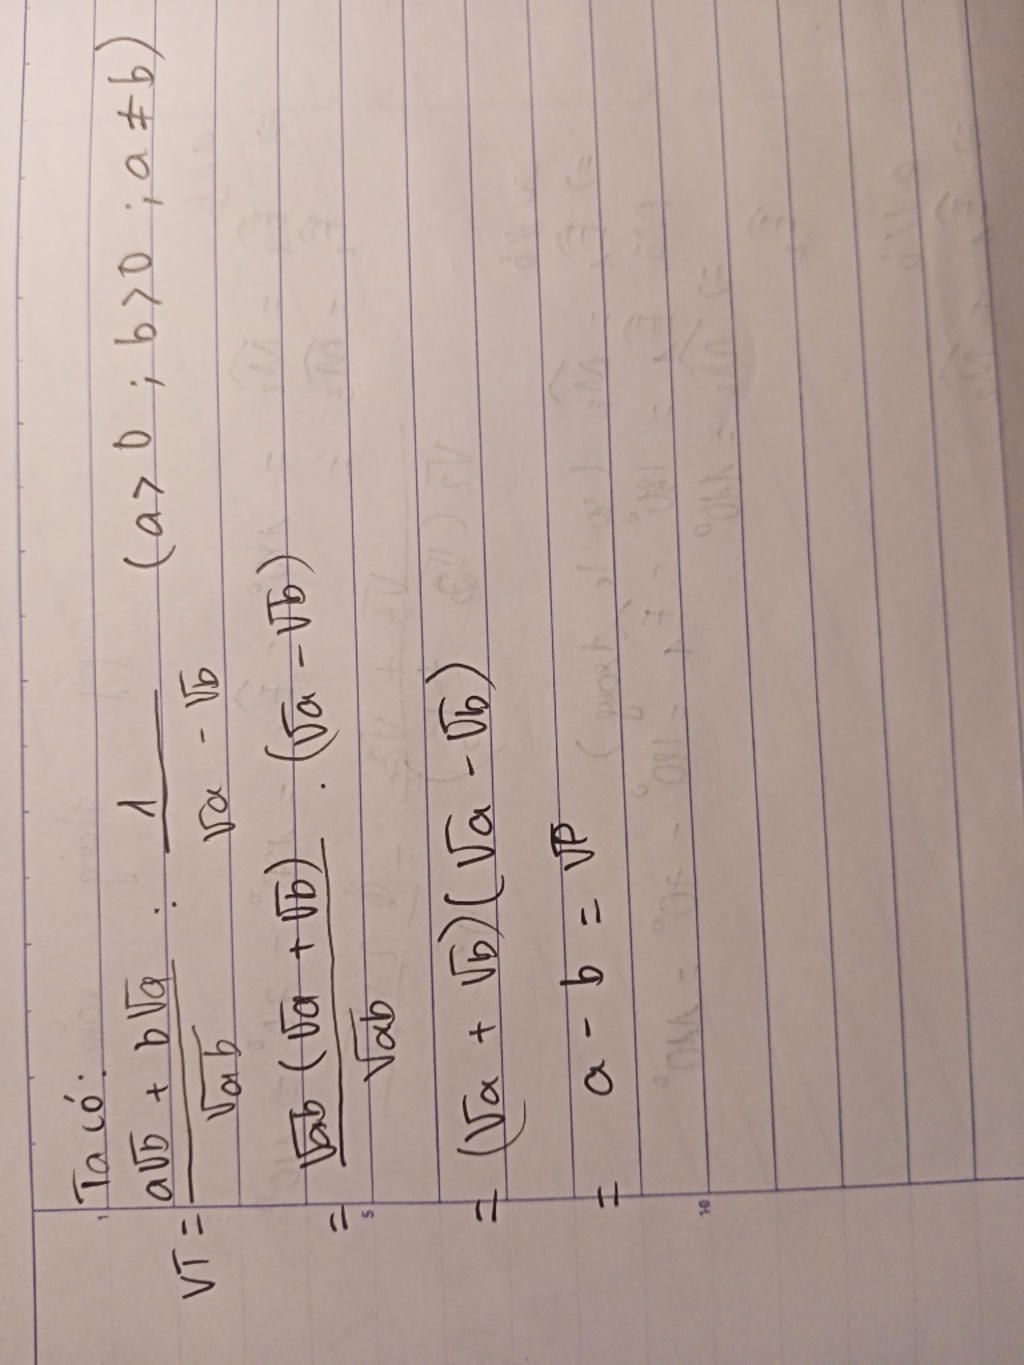 Ta có:
VT = a√b + b√a / √ab : 1 / √a - √b (a > 0 ; b > 0 ; a ≠ b)
= √ab (√a + √b) / √ab . (√a - √b)
= (√a + √b)(√a - √b)
= a - b = VP